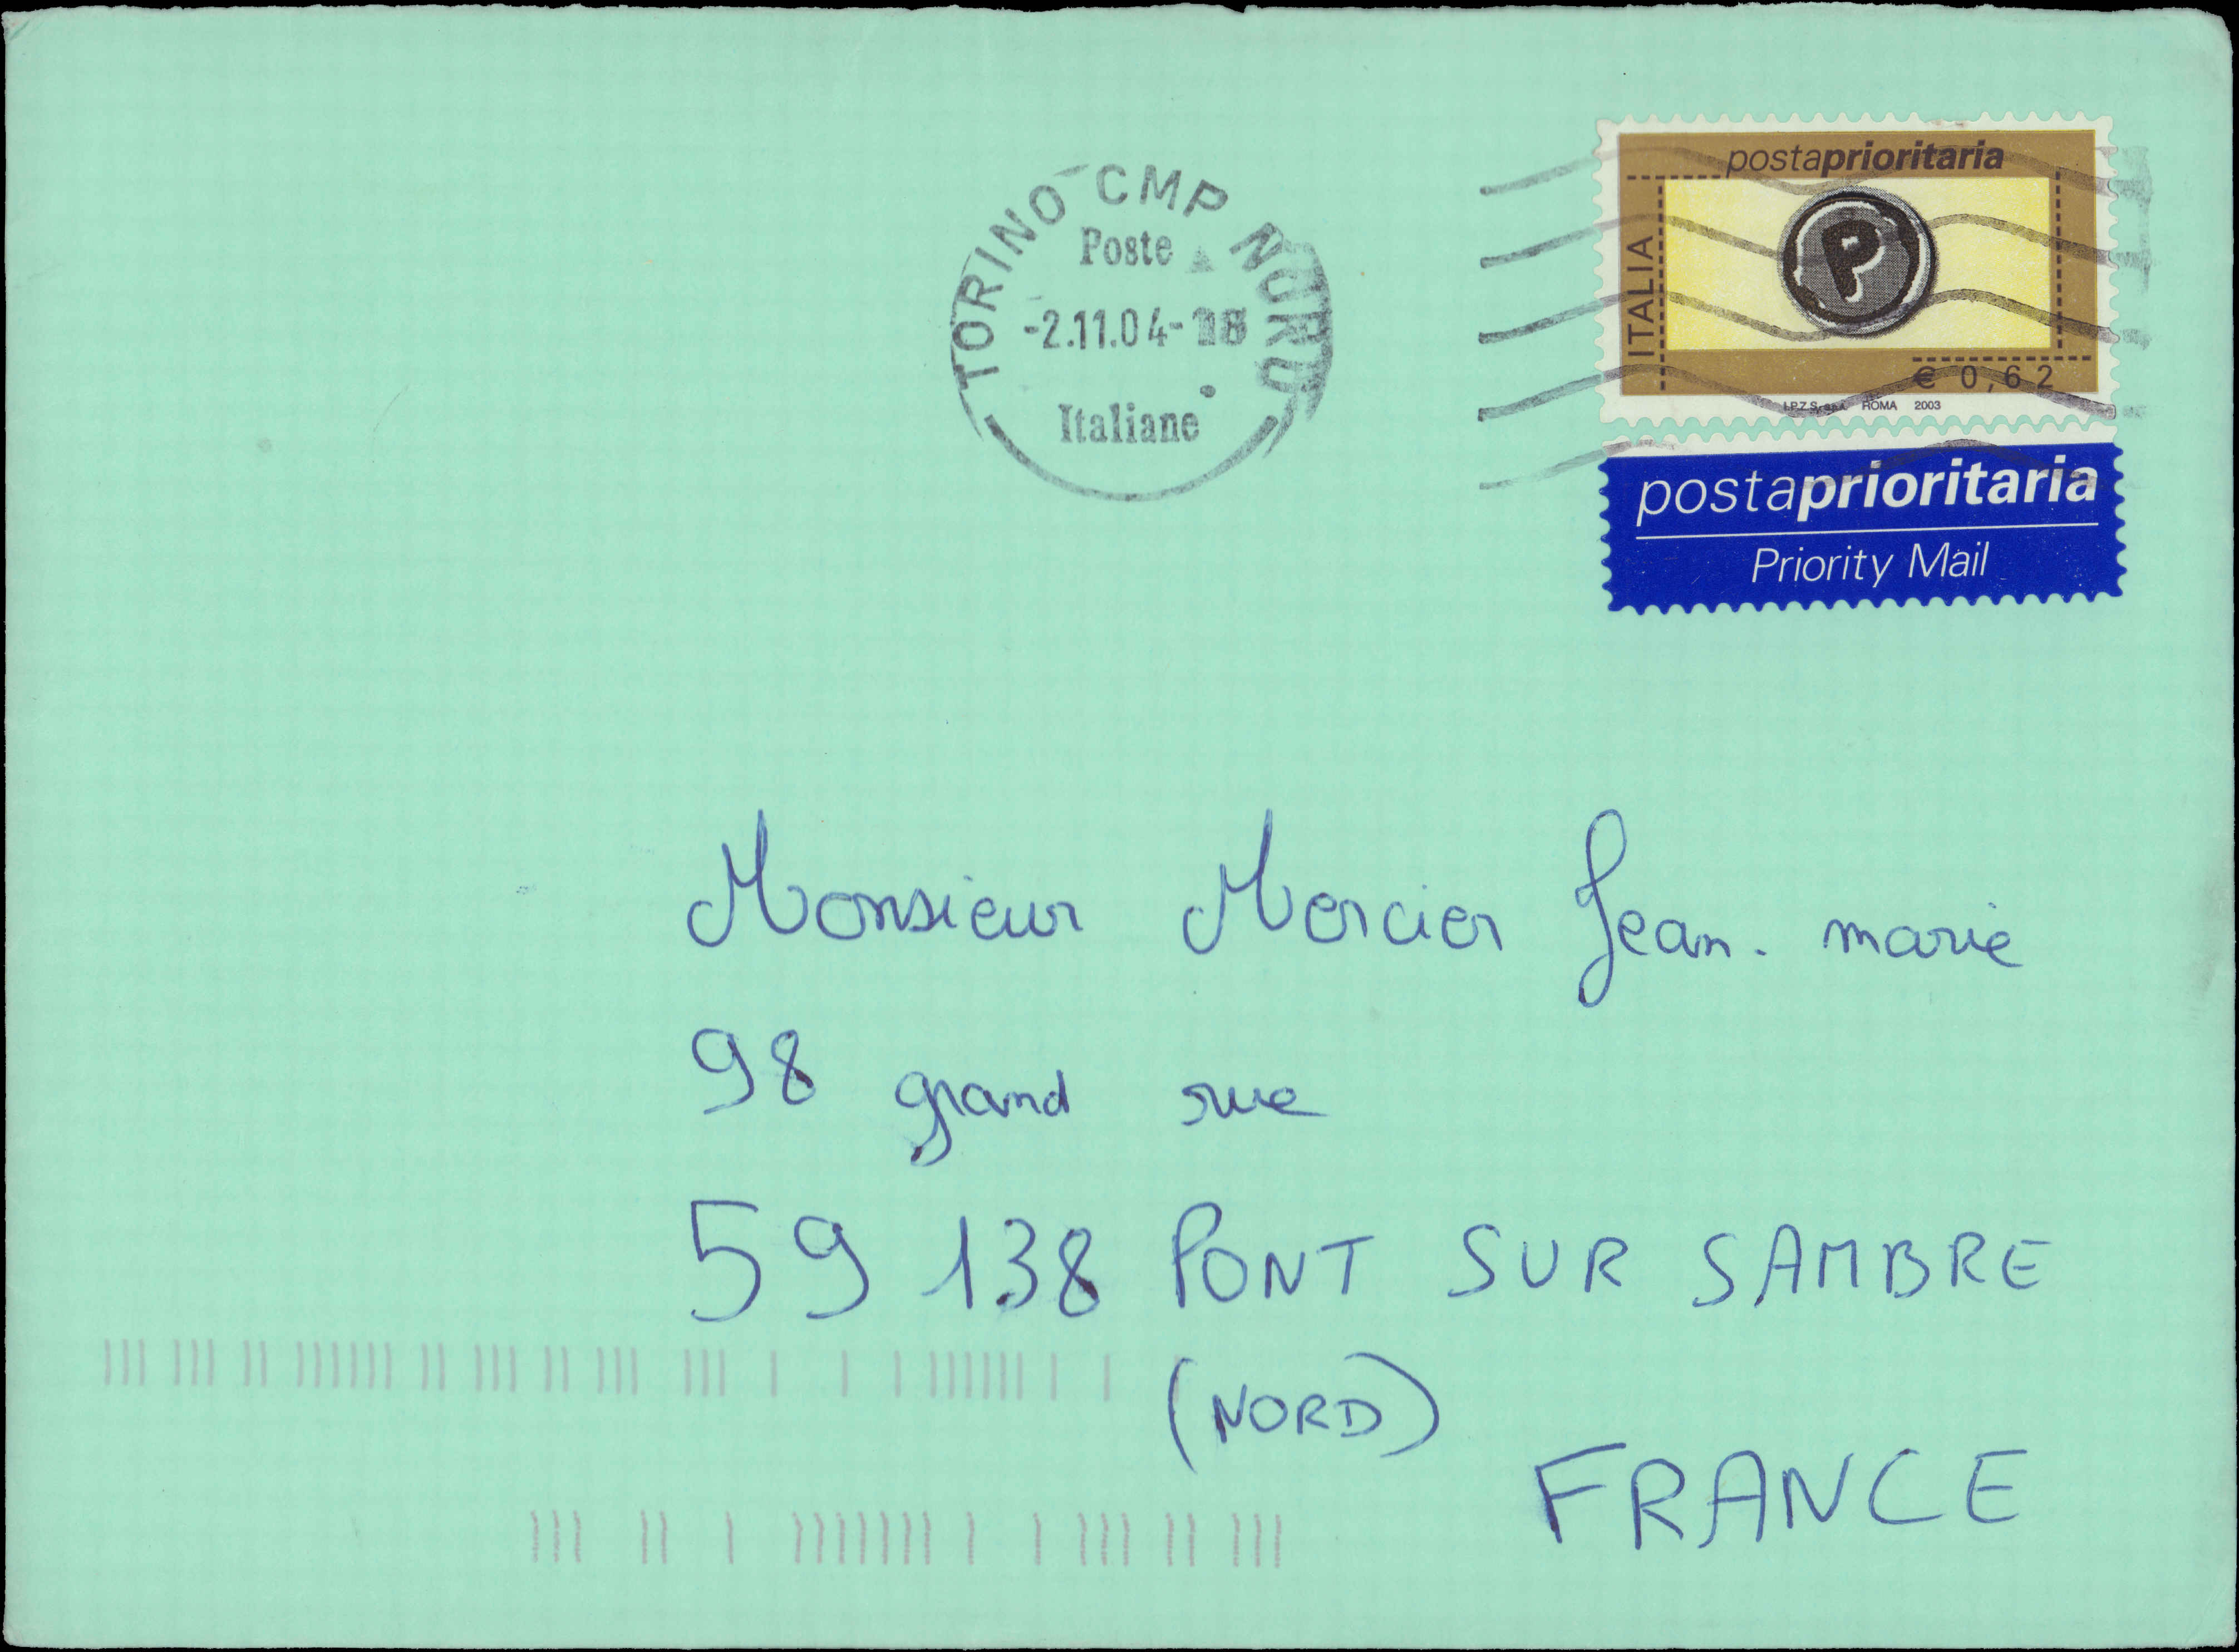 TORINO CMP NORD
Poste
-2.11.04-18
Italiane
postaprioritaria
P
ITALIA
€ 0,62
I.P.Z.S. S.p.A. ROMA 2003
postaprioritaria
Priority Mail
Monsieur Mercier Jean. marie
98 grand rue
59 138 PONT SUR SAMBRE
(NORD)
FRANCE